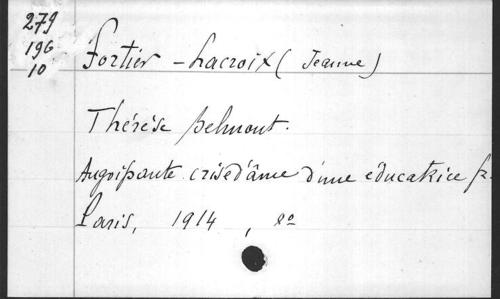 279
196
10
Fortier - Lacroix (Jeanne)
Thérèse Belmont.
Angoißante crise d'âme d'une educatrice fr.
Paris, 1914, 8º